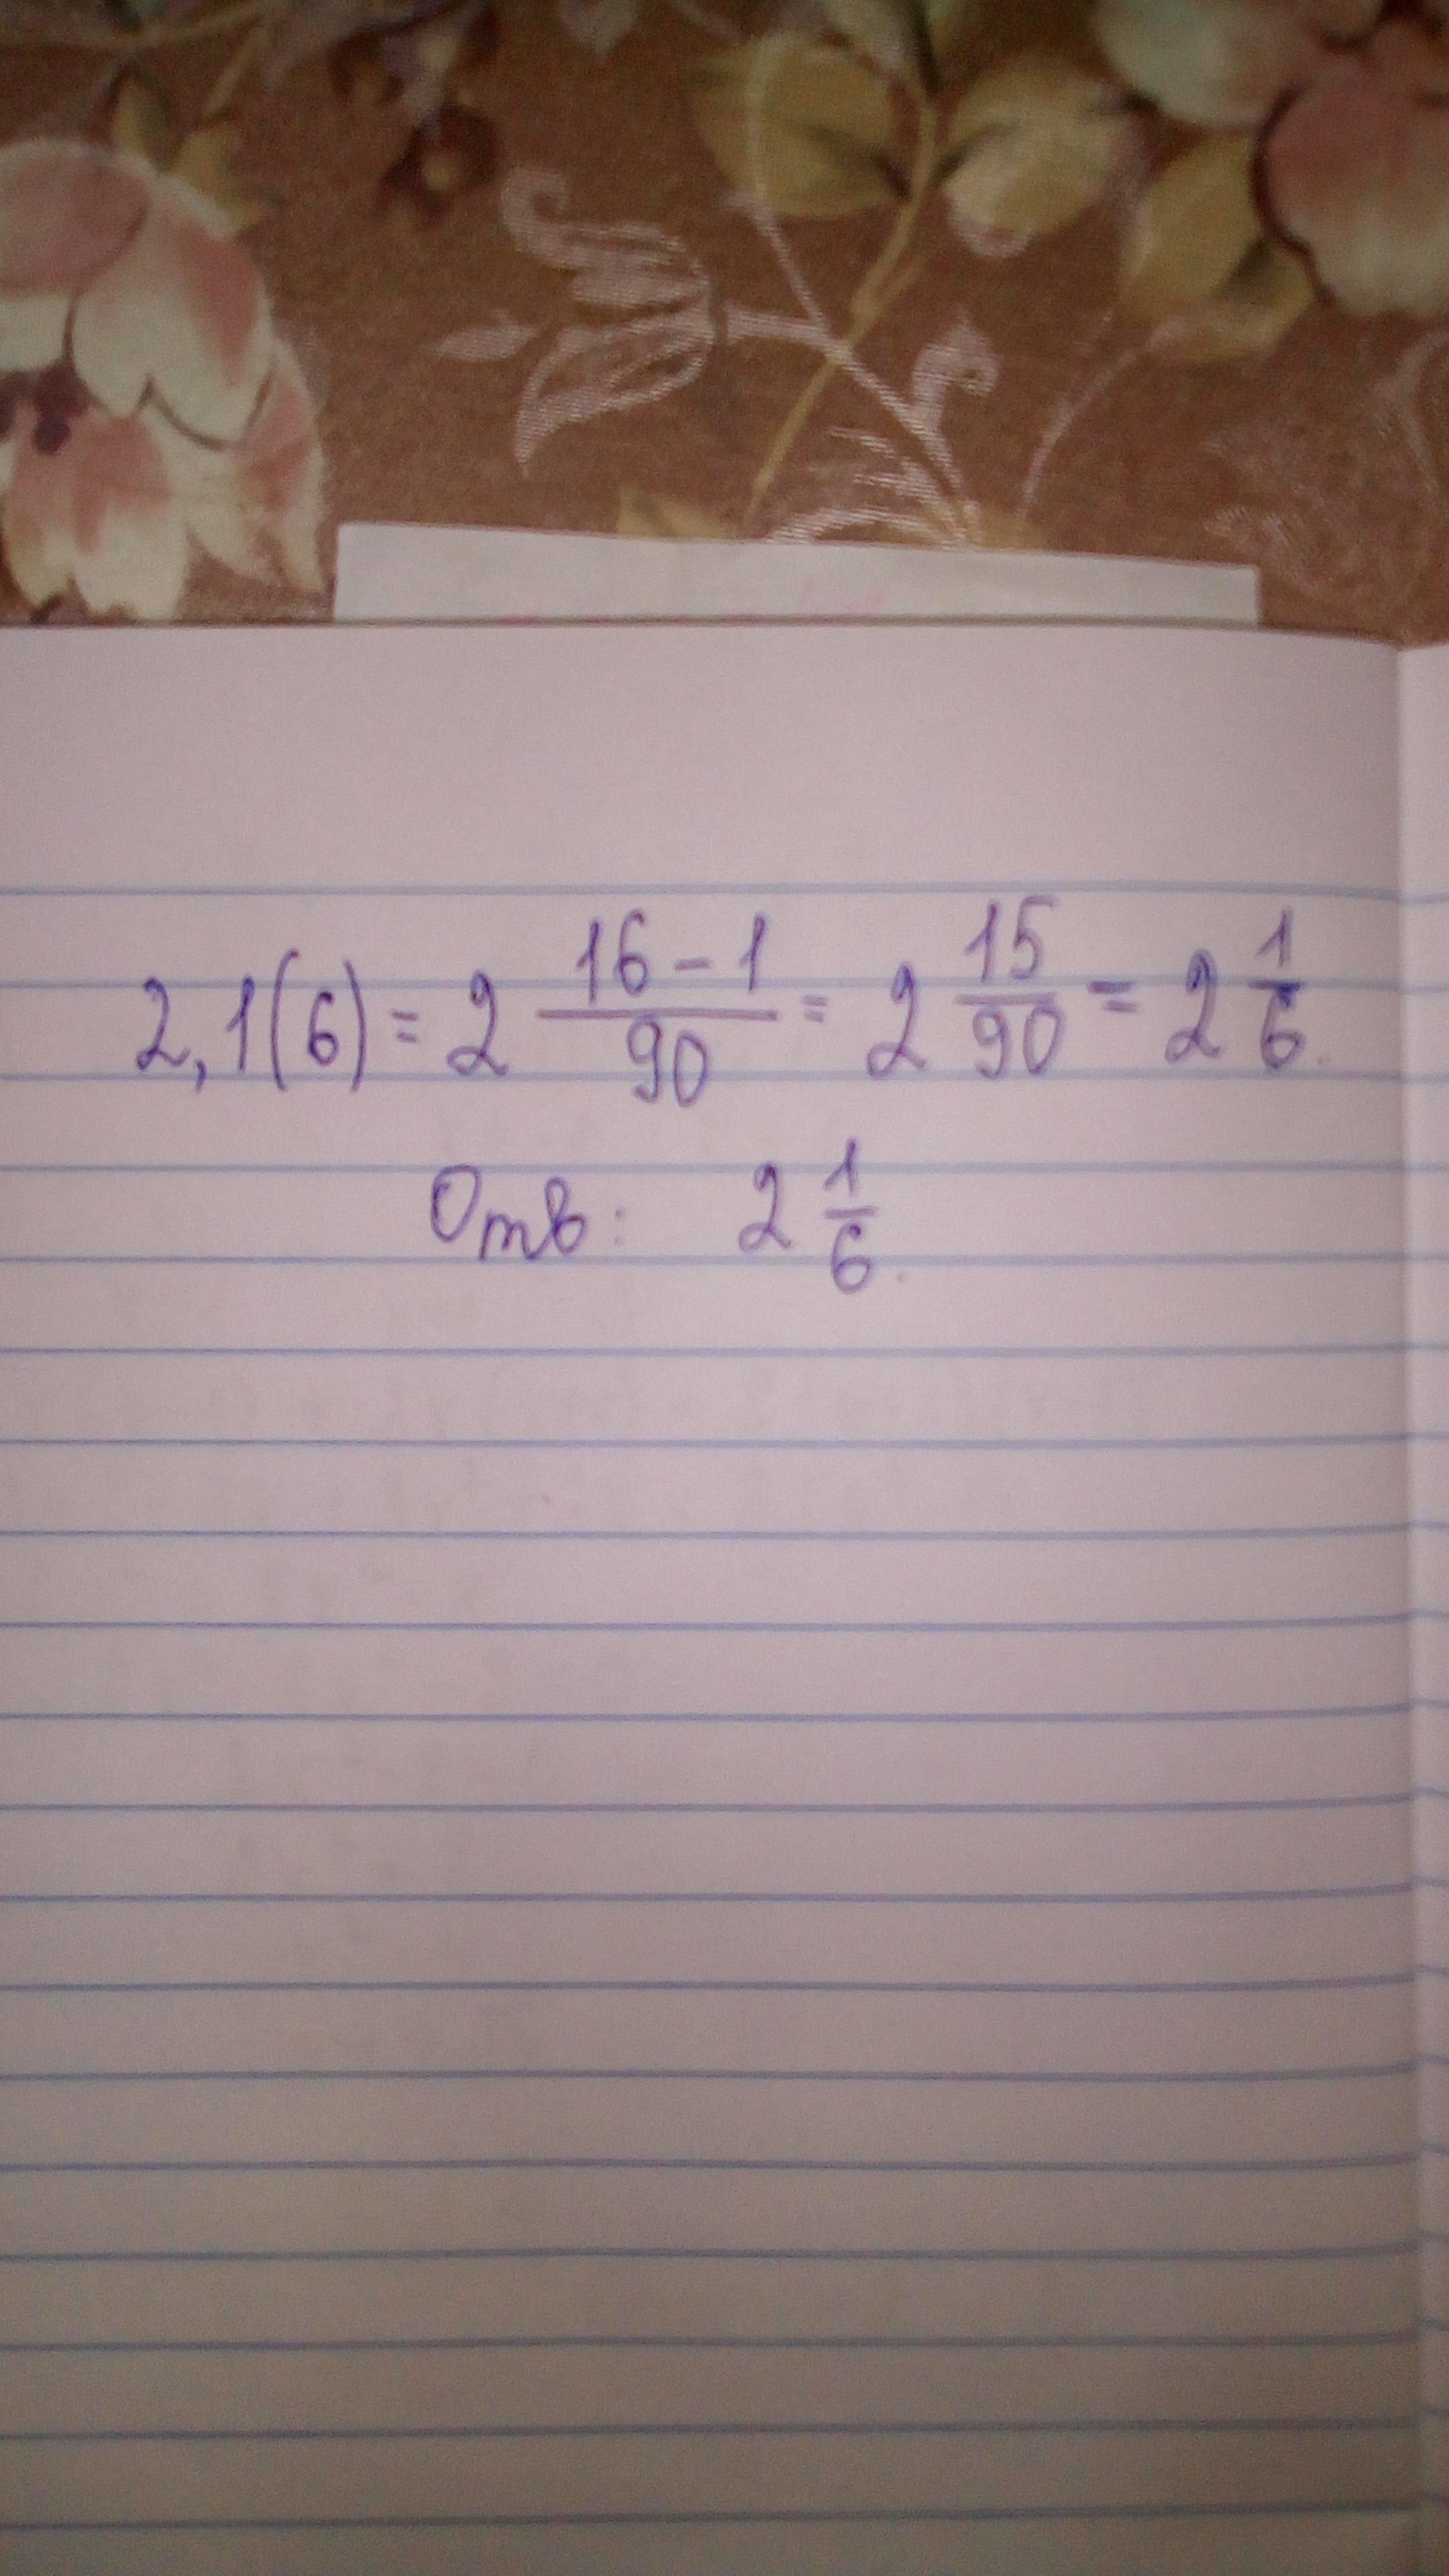 2,1(6) = 2 16-1/90 = 2 15/90 = 2 1/6.
Отв: 2 1/6.